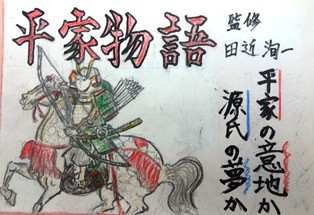 平家物語
監修
田近洵一
平家の意地か
源氏の夢か